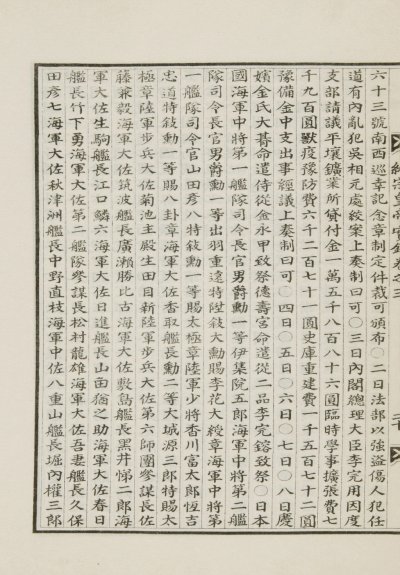 六十三號南西巡幸記念章制定件裁可頒布○二日法部以強盜傷人犯任
道有內亂犯吳相元處絞案上奏制曰可○三日內閣總理大臣李完用因度
支部請議平壤鑛業所貸付金一萬五千八百八十六圓臨時學事擴張費七
千九百圓獸疫豫防費六千二百七十一圓史庫重建費一千五百七十二圓
豫備金中支出事經議上奏制曰可○四日○五日○六日○七日○八日慶
嬪金氏大朞命遣侍從金永甲致祭德壽宮命遣從二品李定鎔致祭○日本
國海軍中將第一艦隊司令長官男爵勳一等伊集院五郎海軍中將第二艦
隊司令長官男爵勳一等出羽重遠特陞敍大勳賜李花大綬章海軍中將第
一艦隊司令官山田彥八特敍勳一等賜太極章陸軍少將香川富太郎恆吉
忠道特敍勳一等賜八卦章海軍大佐香取艦長勳二等大城源三郎特賜太
極章陸軍步兵大佐菊池主殿生田目新陸軍步兵大佐第六師團參謀長佐
藤兼毅海軍大佐筑波艦長廣瀨勝比古海軍大佐敷島艦長黑井悌二郎海
軍大佐生駒艦長江口鱗六海軍大佐日進艦長山田猶之助海軍大佐春日
艦長竹下勇海軍大佐第二艦隊參謀長松村龍雄海軍大佐吾妻艦長久保
田彥七海軍大佐秋津洲艦長中野直枝海軍中佐八重山艦長堀內權三郎